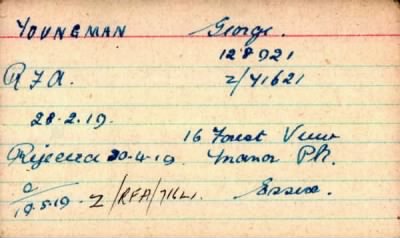 YOUNGMAN George.
128921
RFA. 2/71621
28.2.19.
16 Forest View
Rejected 30.4.19. Manor Pk.
Essex.
19.5.19. Z/RFA/71621.